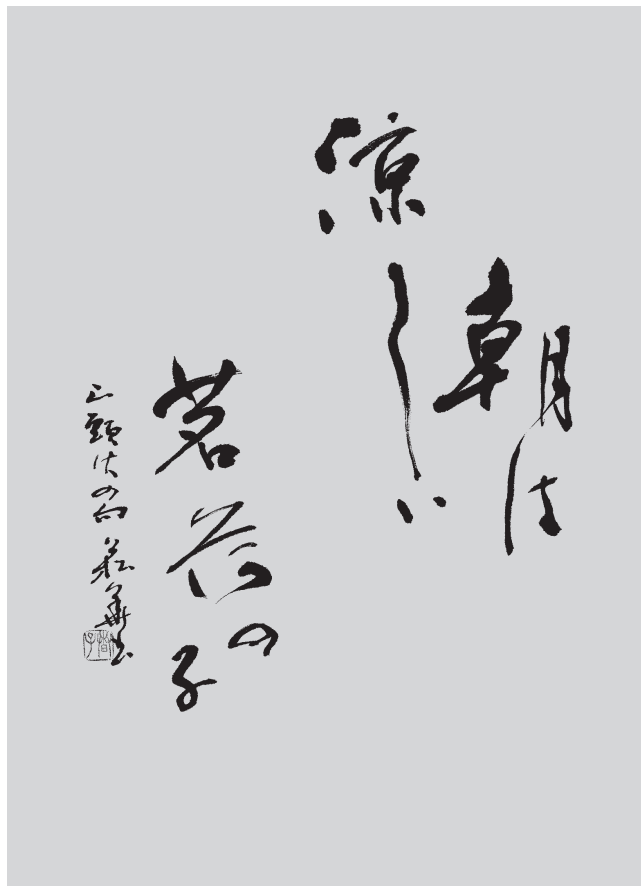 朝は
涼しい
茗荷の子
山頭火の句